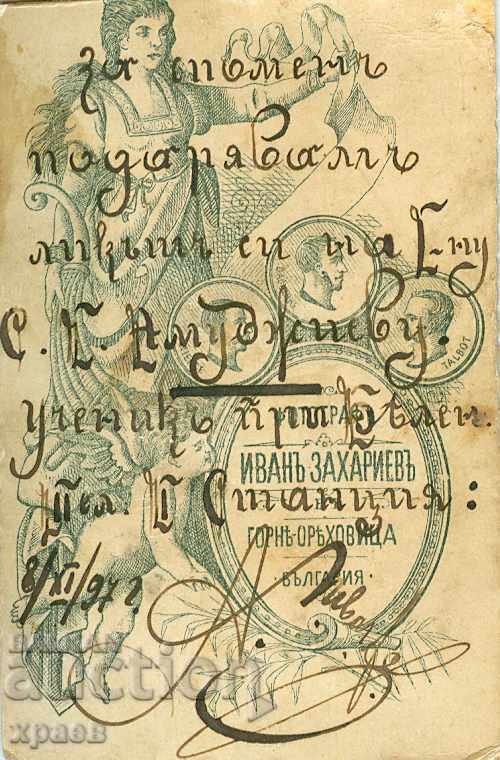 за споменъ
подарявамъ
ликътъ си на Г-ну
С. Г. Амуджиеву.
ученикъ при Бѣлен.
Тел. П Станция:
8/XI/97 г.
ФОТОГРАФЪ
ИВАНЪ ЗАХАРИЕВЪ
ГОРНѢ-ОРѢХОВИЦА
БЪЛГАРИЯ
TALBOT
auction
храев